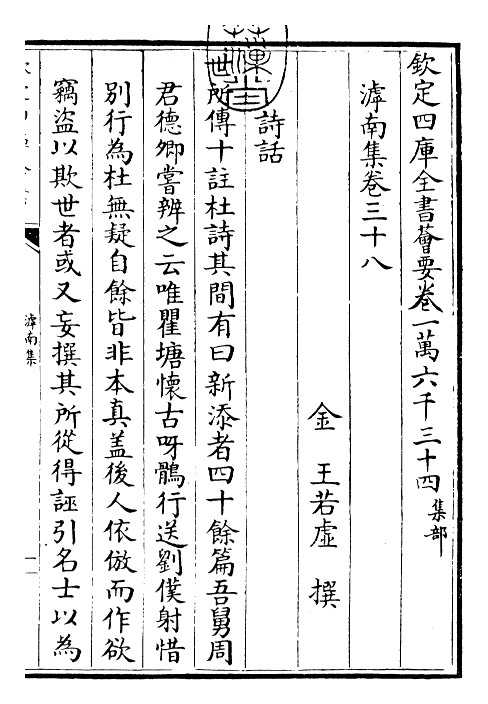 欽定四庫全書薈要卷一萬六千三十四 集部
滹南集卷三十八
金 王若虛 撰
詩話
世所傳十註杜詩其間有曰新添者四十餘篇吾舅周
君德卿嘗辨之云唯瞿塘懷古呀鶻行送劉僕射惜
別行為杜無疑自餘皆非本真盖後人依倣而作欲
竊盜以欺世者或又妄撰其所從得誣引名士以為
滹南集
一